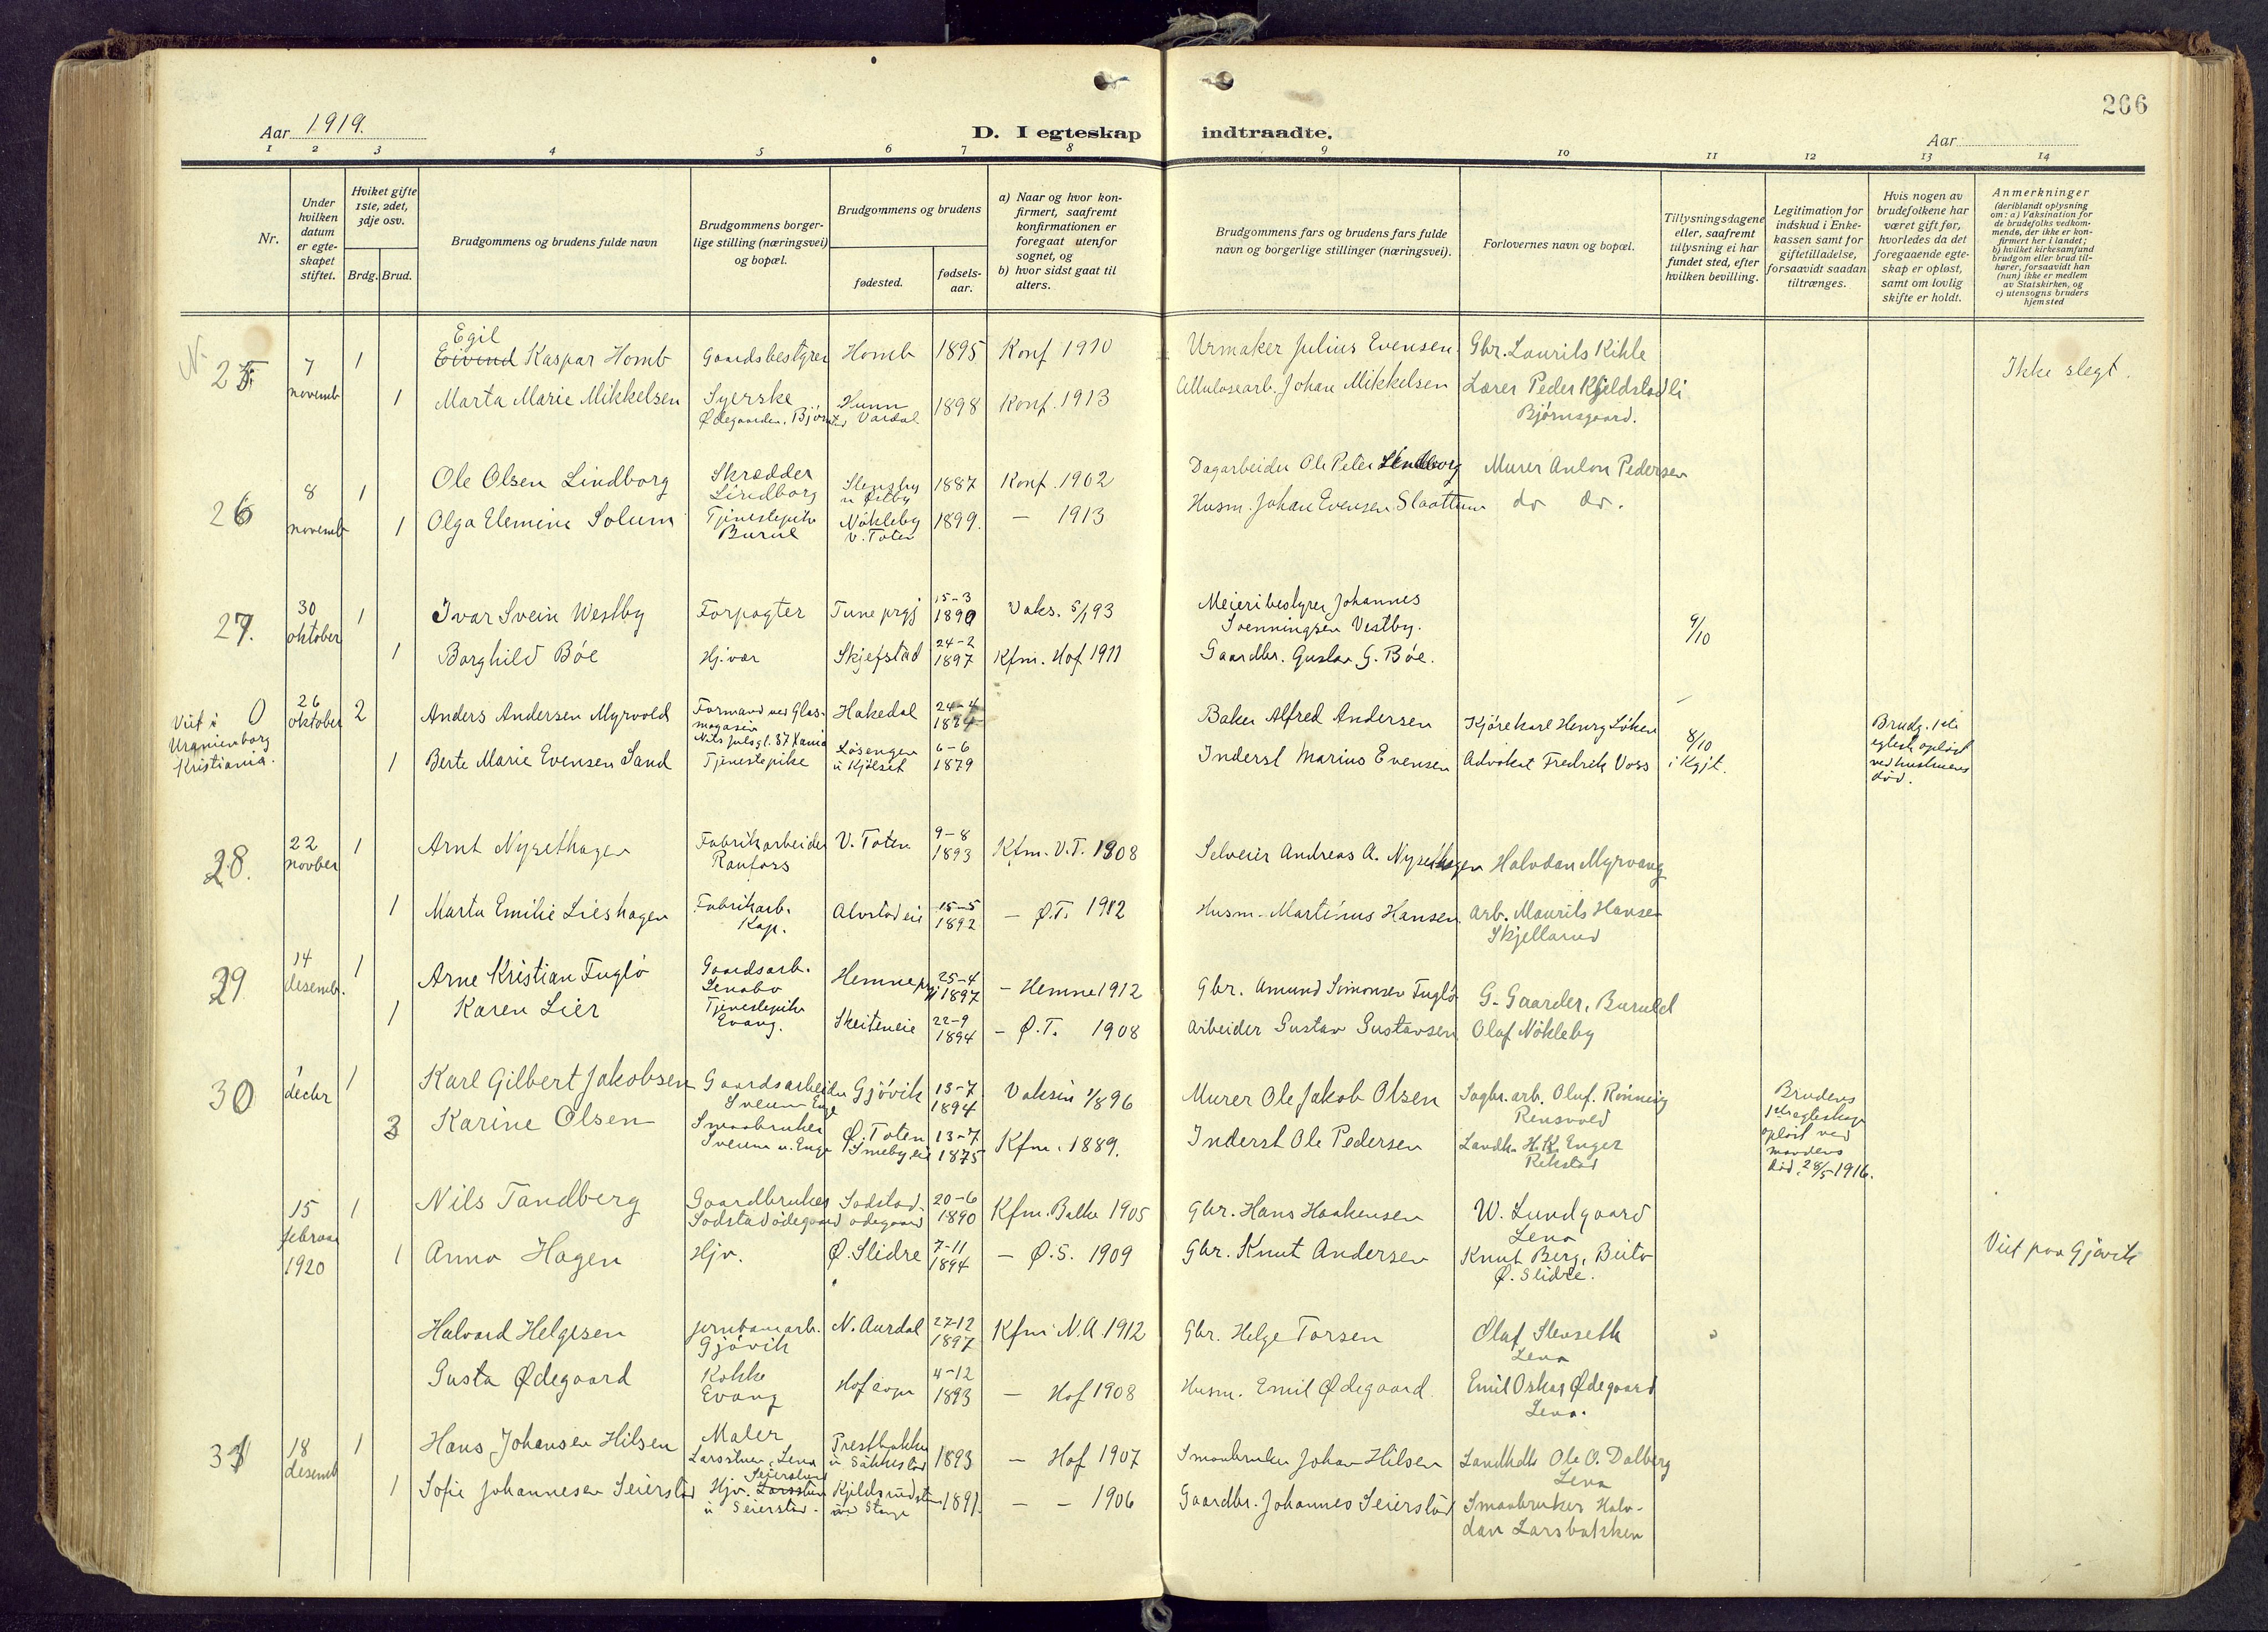 266
Aar 1919.
D. I egteskap indtraadte.
Aar
1 2 3 4 5 6 7 8 9 10 11 12 13 14
Nr.
Under hvilken datum er egteskapet stiftet.
Hvilket gifte 1ste, 2det, 3dje osv.
Brdg. Brud.
Brudgommens og brudens fulde navn
Brudgommens borgerlige stilling (næringsvei) og bopæl.
Brudgommens og brudens
fødested.
fødselsaar.
a) Naar og hvor konfirmert, saafremt konfirmationen er foregaat utenfor sognet, og
b) hvor sidst gaat til alters.
Brudgommens fars og brudens fars fulde navn og borgerlige stillinger (næringsvei).
Forlovernes navn og bopæl.
Tillysningsdagene eller, saafremt tillysning ei har fundet sted, efter hvilken bevilling.
Legitimation for indskud i Enkekassen samt for giftetilladelse, forsaavidt saadan tiltrænges.
Hvis nogen av brudefolkene har været gift før, hvorledes da det foregaaende egteskap er opløst, samt om lovlig skifte er holdt.
Anmerkninger (deriblandt oplysning om: a) Vaksination for de brudefolks vedkommende, der ikke er konfirmert her i landet; b) hvilket kirkesamfund brudgom eller brud tilhører, forsaavidt han (hun) ikke er medlem av Statskirken, og c) utensogns bruders hjemsted
25 7 novemb 1 Egil Eivind Kaspar Homb Gaardsbestyrer Homb 1895 Konf 1910 Urmaker Julius Evensen Gbr. Laurits Kihle
Ikke slegt.
1 Marta Marie Mikkelsen Syerske Ødegaarden, Hunn Vardal 1898 Konf. 1913 Cellulosearb. Johan Mikkelsen Lærer Peder Kjeldstadli Bjørnsgaard.
26 8 novemb 1 Ole Olsen Lindborg Skrædder Lindborg Stensby 1887 Konf. 1902 Dagarbeider Ole Peter Lindborg Murer Anton Pedersen
1 Olga Elemine Solum Tjenestepike Burul Nökleby V. Toten 1899. — 1913 Husm. Johan Evensen Slaattum do do.
27. 30 oktober 1 Ivar Svein Westby Forpagter Tune prgj 15-3 1890 Vaks. 5/1 93 Meieribestyrer Johannes Svenningsen Vestby. 9/10
1 Borghild Böe Hj.vær Skjefstad 24-2 1897 Kfm. Hof 1911 Gaardbr. Gustav G. Böe.
Viet i Uranienborg Kristiania. 0 26 oktober 2 Anders Andersen Myrvold Formand ved Glasmagasin Nils Julsgt. 37 Kania Hakedal 24-4 Baker Alfred Andersen Kjörekarl Henry Löken 8/10 i Kgjt.
Brudg. 1ste egtesk. opløst ved hustruens død.
1 Berte Marie Evensen Sand Tjenestepike Lösengen u Kjölset 6-6 1879 Inderst Marius Evensen Advokat Fredrik Voss
28. 22 novber 1 Arnt Nysethagen Fabrikarbeider Raufoss V. Toten 9-8 1893 Kfm. V.T. 1908 Selveier Andreas A. Nysethagen Halvdan Myrvang
1 Marta Emilie Lieshagen Fabrikarb. Kap. Alvstadeie 15-5 1892 — Ø.T. 1912 Husm. Martinus Hansen Arb. Maurits Hansen Skjellerud
29 14 desemb. 1 Arne Kristian Fuglö Gaardsarb. Lenabo Hemne prgj 25-4 1897 — Hemne 1912 Gbr. Amund Simonsen Fuglö G. Gaarder, Baruld
1 Karen Lier Tjenestepike Evang. Skeiteneie 22-9 1894 — Ø.T. 1908 Arbeider Gustav Gustavsen Olaf Nökleby
30 1 decbr 1 Karl Gilbert Jakobsen Gaardsarbeider Sveum Enge Gjövik 13-7 1894 Vaksin 1/8 96 Murer Ole Jakob Olsen Sagbr. arb. Oluf Rönning Rensvold
Brudens 1ste egteskap opløst ved mandens död. 28/5 1916.
3 Karine Olsen Smaabruker Sveum u. Enge Ø. Toten Smebyeie 13-7 1875 Kfm. 1889. Inderst Ole Pedersen Landh. H.K. Enger Rekstad
15 februar 1920 1 Nils Tandberg Gaardbruker Sodstad ödegaard Sodstad ödegaard 20-6 1890 Kfm. Balke 1905 Gbr. Hans Haakensen W. Lundgaard Lena
1 Anna Hagen Hjv. Ø. Slidre 7-11 1894 — Ø.S. 1909 Gbr. Knut Andersen Knut Berg, Beito Ø. Slidre.
Viet paa Gjøvik
Halvard Helgesen Jernbanearb. Gjövik N. Aurdal 27-12 1897 Kfm N.A. 1912 Gbr. Helge Torsen Olaf Stenseth Lena
Gusta Ødegaard Kokke Evang Hof sogn 4-12 1893 — Hof 1908 Husm. Emil Ødegaard. Emil Oskar Ødegaard Lena.
31 18 desemb 1 Hans Johansen Hilsen Maler Larsstuen, Lena Prestbakken 1893 — Hof 1907 Smaabruker Johan Hilsen Landh. Ole O. Dalberg Lena
1 Sofie Johannesen Seierstad Hjv. Seierstad Larsstuen u Seierstad. 1891. — — 1906 Gaardbr. Johannes Seierstad Smaabruker Halvdan Larsbakken